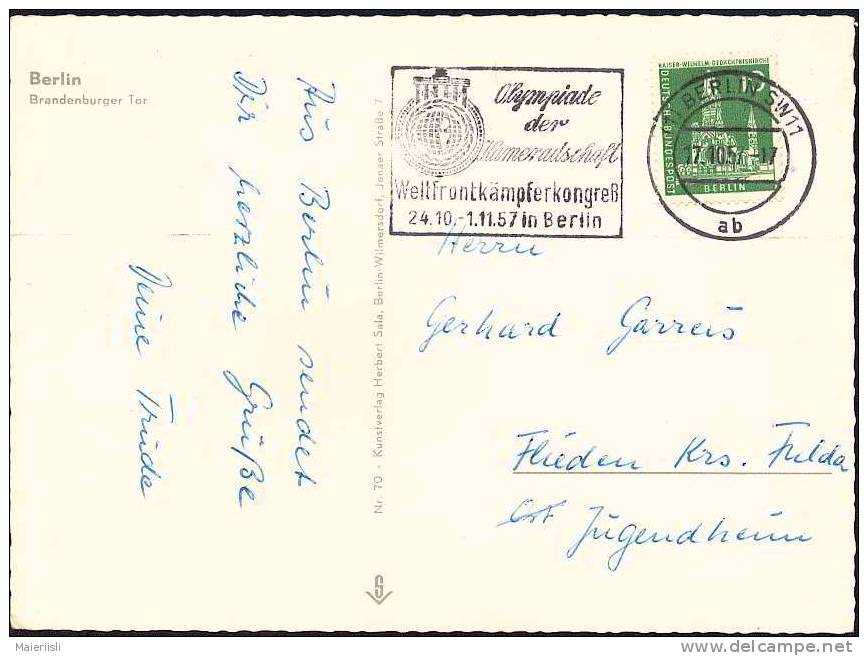 Berlin
Brandenburger Tor
Aus Berlin sendet
Dir herzliche Grüße
Deine Trude
Nr. 70 · Kunstverlag Herbert Sala, Berlin-Wilmersdorf, Jenaer Straße 7
Olympiade
der
Kameradschaft
Weltfrontkämpferkongreß
24.10.-1.11.57 in Berlin
KAISER-WILHELM-GEDÄCHTNISKIRCHE
DEUTSCHE BUNDESPOST
BERLIN
BERLIN SW11
17.10.57.-17
ab
Herrn
Gerhard Garreis
Flieden Krs. Fulda
Jugendheim
S
Maierlisli
www.delcampe.net